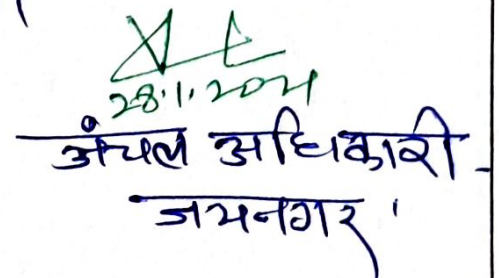 28.1.2021
अंचल अधिकारी
जयनगर